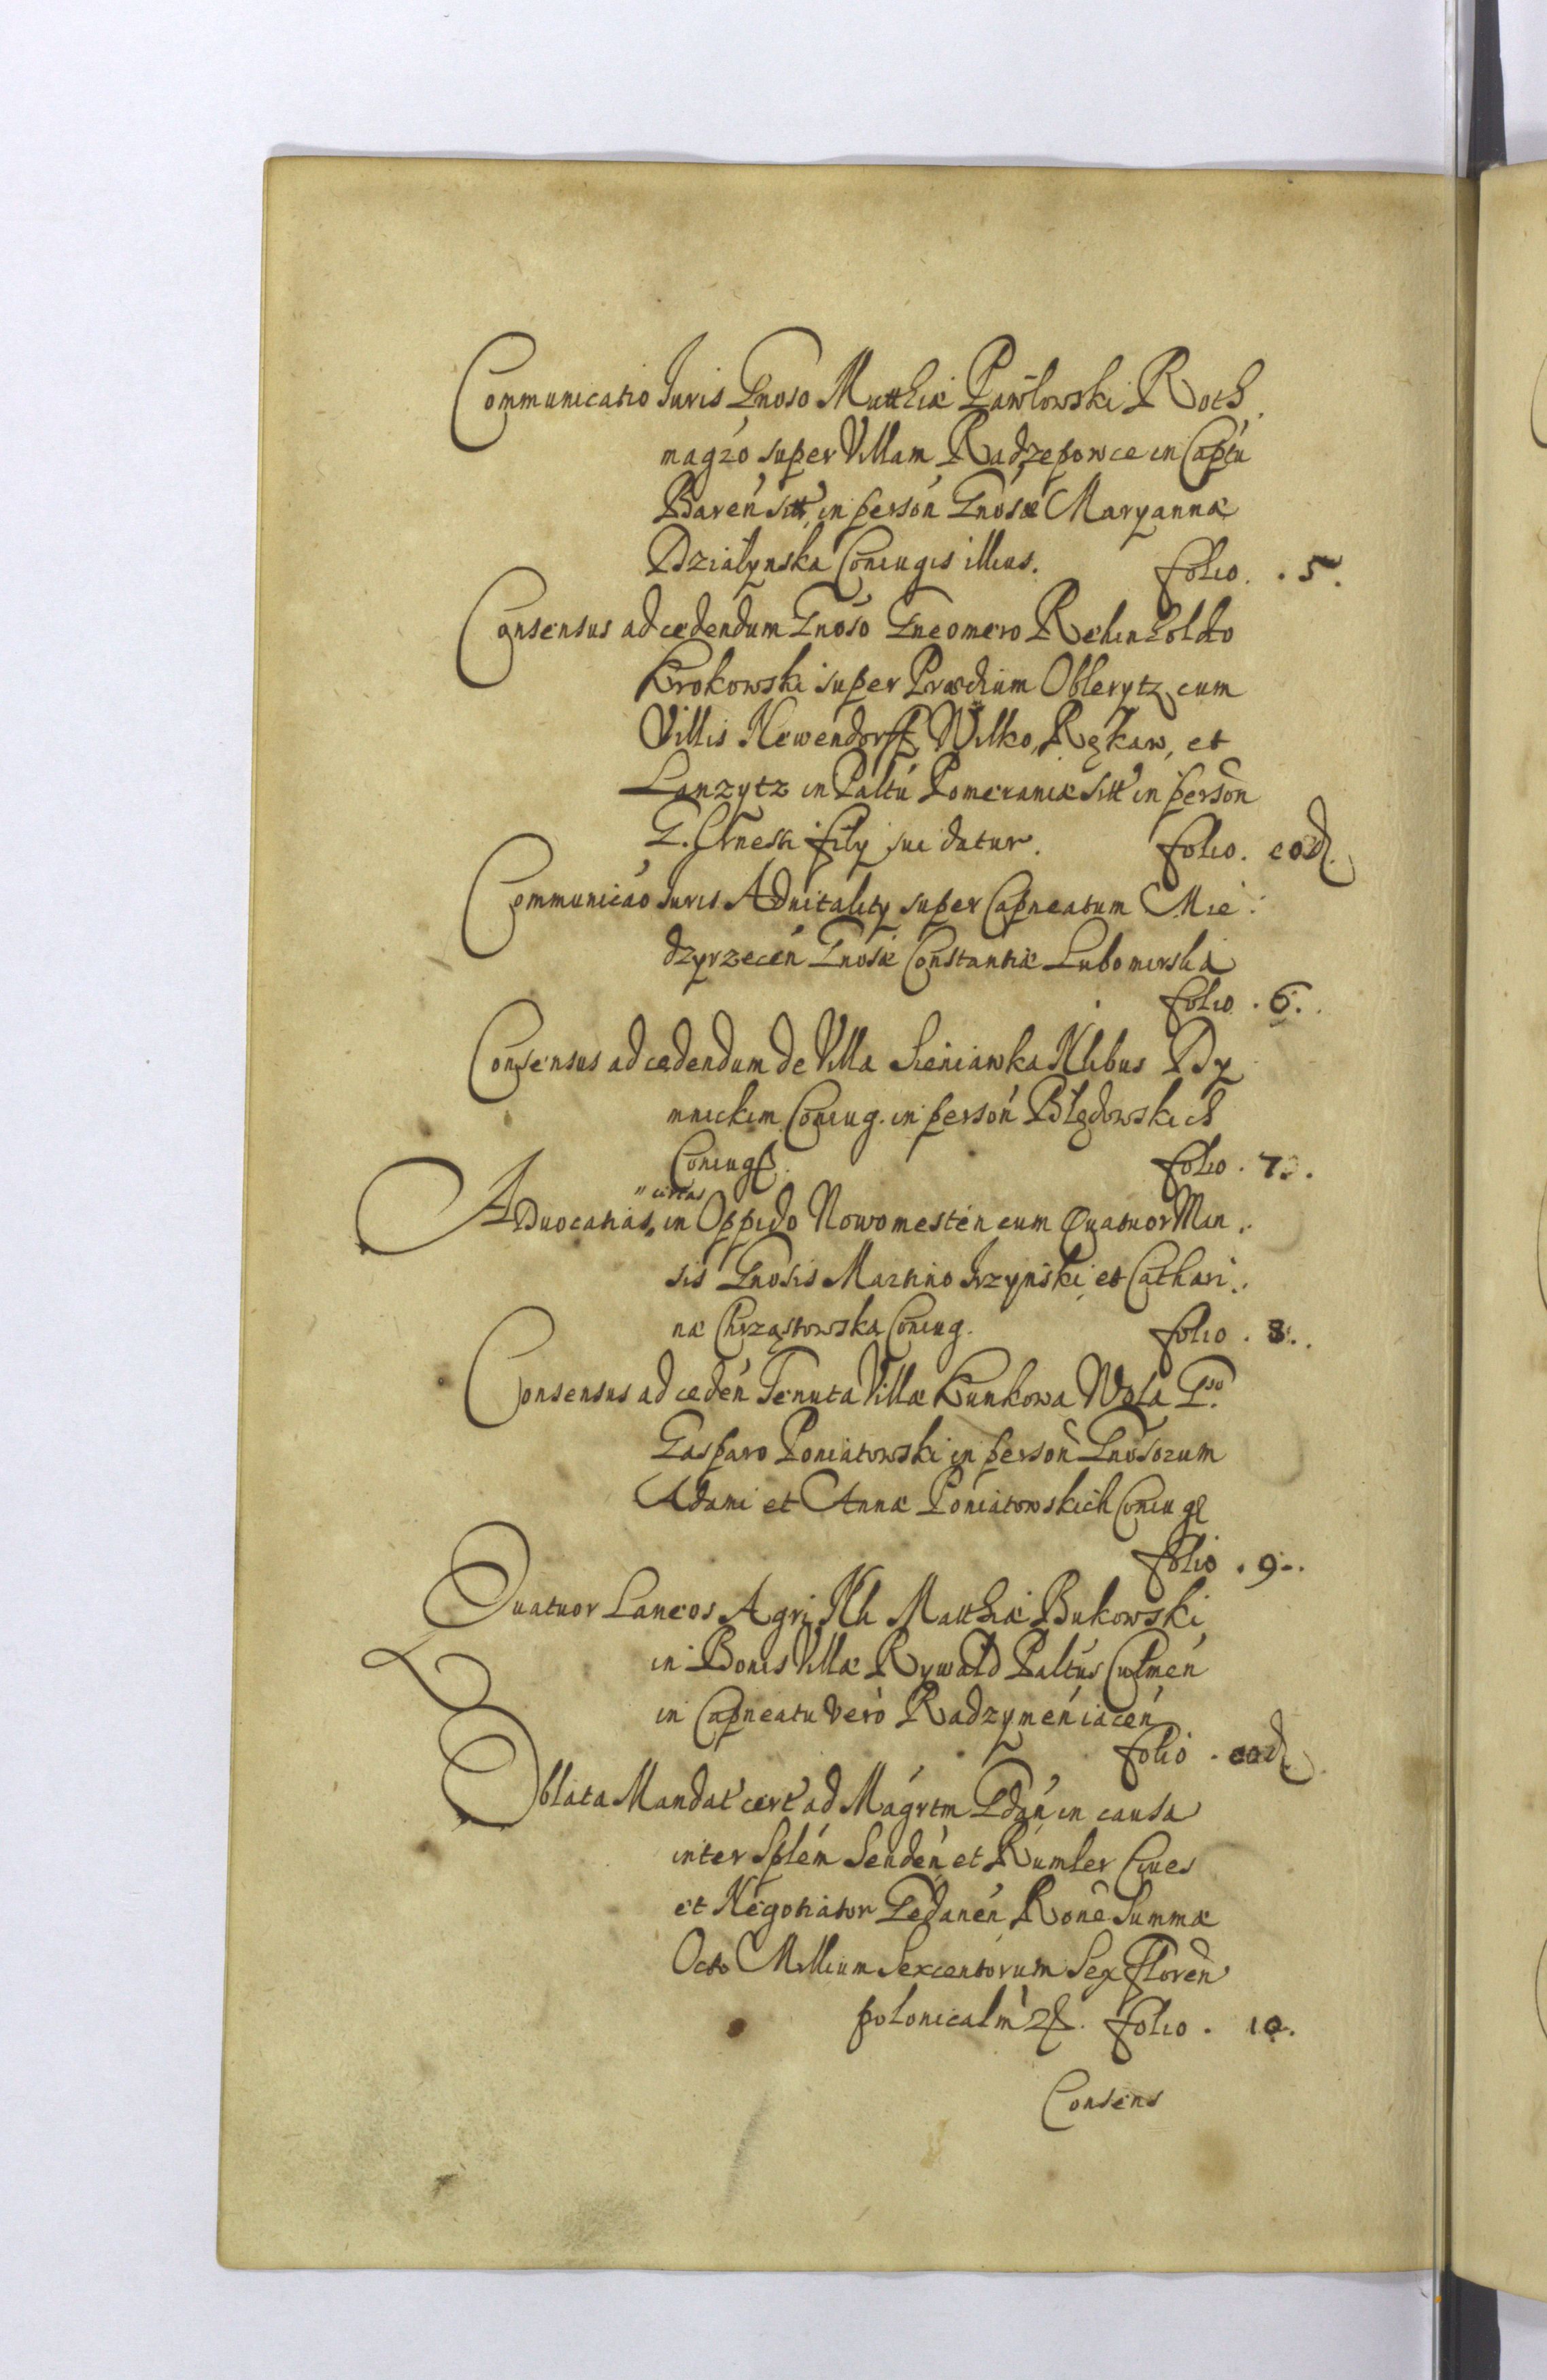 Communicatio Iuris Gnoso Matthiæ Pawłowski Roth
magró super Villam Radzepowce in Captu
Barén sitt in persón Gnosæ Maryannæ
Działynska Coniugis illius. folio. . 5.
Consensus ad cædendum Gnoso Gneomero Rehinholdo
Krokowski super Prædium Oblerytz cum
Villis Newendorff, Wilko, Rękaw, et
Lanzytz in Paltú Pomeraniæ sitt in persón
G. Ernesti filÿ sui datur. folio. eod.
Communicáo Iuris Aduitalitÿ super Capneatum Mie
dzyrzecén Gnosæ Constantiæ Lubomirska
folio . 6.
Consensus ad cædendum de Villa Sieniawka Nlibus Dy
mnickim Coniug. in persón Błędowskich
Coniug. folio . 7.
Aduocatias, in Oppido Nowomestén cum Quatuor Man
" certas
sis Gnosis Martino Irzyński et Cathari
næ Chrząstowska Coniug. folio . 8.
Consensus ad cædén Tenuta Villæ Kunkowa Wola Gso
Gasparo Poniatowski in persón Gnosorum
Adami et Annæ Poniatowskich Coniug
folio . 9.
Quatuor Laneos Agri Nli Matthiæ Bukowski
in Bonis Villæ Rywałd Paltús Culmén
in Capneatu veró Radzymén iacén
folio . eod.
Oblata Mandat cert ad Magrtm Gdań in causa
inter Splém Sendén et Rumler Ciues
et Negotiator Gedanén Roné Summæ
Octo Millium Sexcentorum Sex Florén
polonicalm &. folio . 10.
Consens